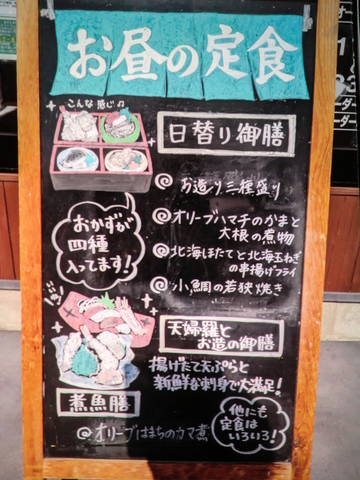 お昼の定食
こんな感じ♪
日替り御膳
◎お造り三種盛り
◎オリーブハマチのかまと
大根の煮物
◎北海ほたてと北海玉ねぎ
の串揚げフライ
◎小鯛の若狭焼き
おかずが
四種
入ってます!
天婦羅と
お造の御膳
揚げたて天ぷらと
新鮮な刺身で大満足!
煮魚膳
◎オリーブはまちのカマ煮
他にも
定食は
いろいろ!